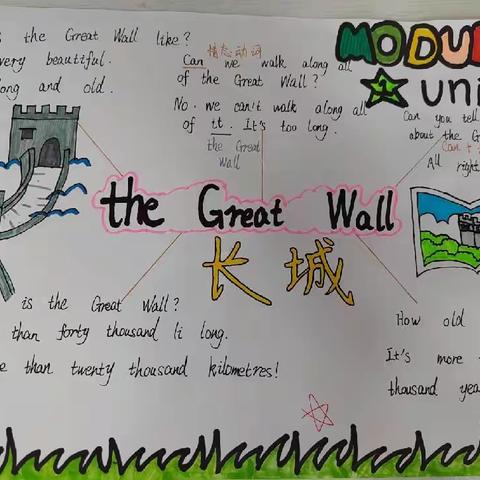 the Great Wall like?
very beautiful.
and old.
情态动词
Can we walk along all
of the Great Wall?
No. we can't walk along all
of it. It's too long.
the Great
Wall
MODU
1 Uni
Can you tell
about the G
Can +
All right
the Great Wall
长城
is the Great Wall?
than forty thousand li long.
than twenty thousand kilometres!
How old
It's more
thousand